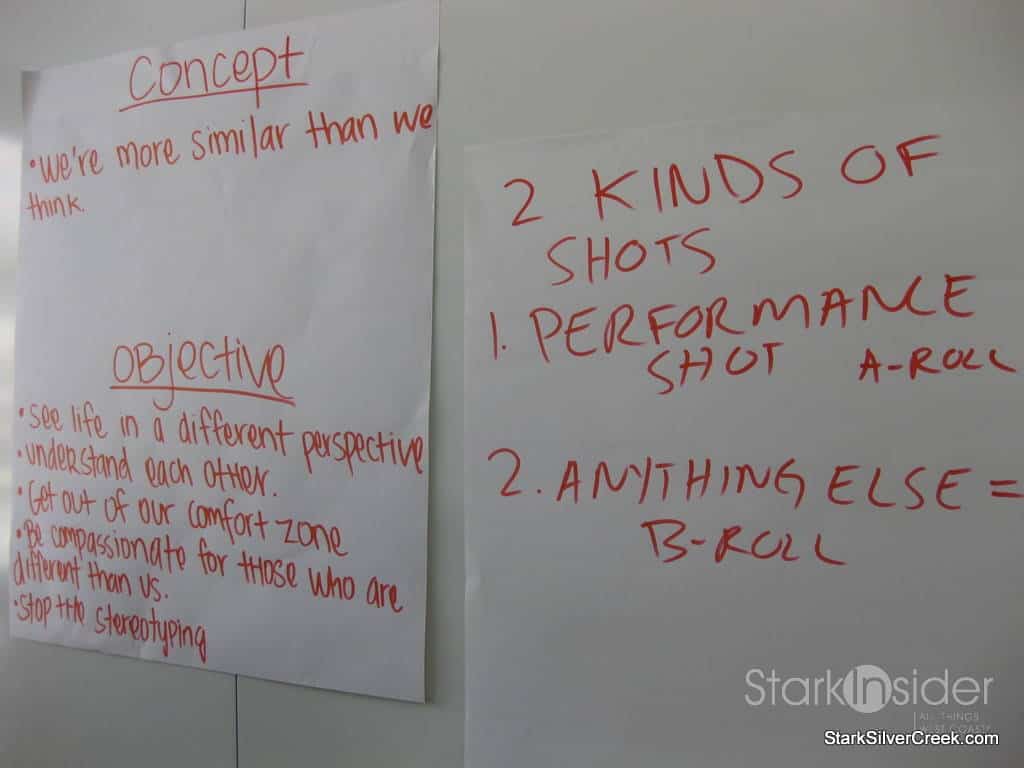 Concept
• We're more similar than we
think.
Objective
• See life in a different perspective
• understand each other.
• Get out of our comfort zone
• Be compassionate for those who are
different than us.
• Stop the stereotyping
2 KINDS OF
SHOTS
1. PERFORMANCE
SHOT A-ROLL
2. ANYTHING ELSE =
B-ROLL
StarkInsider
ALL THINGS
WEST COAST
StarkSilverCreek.com